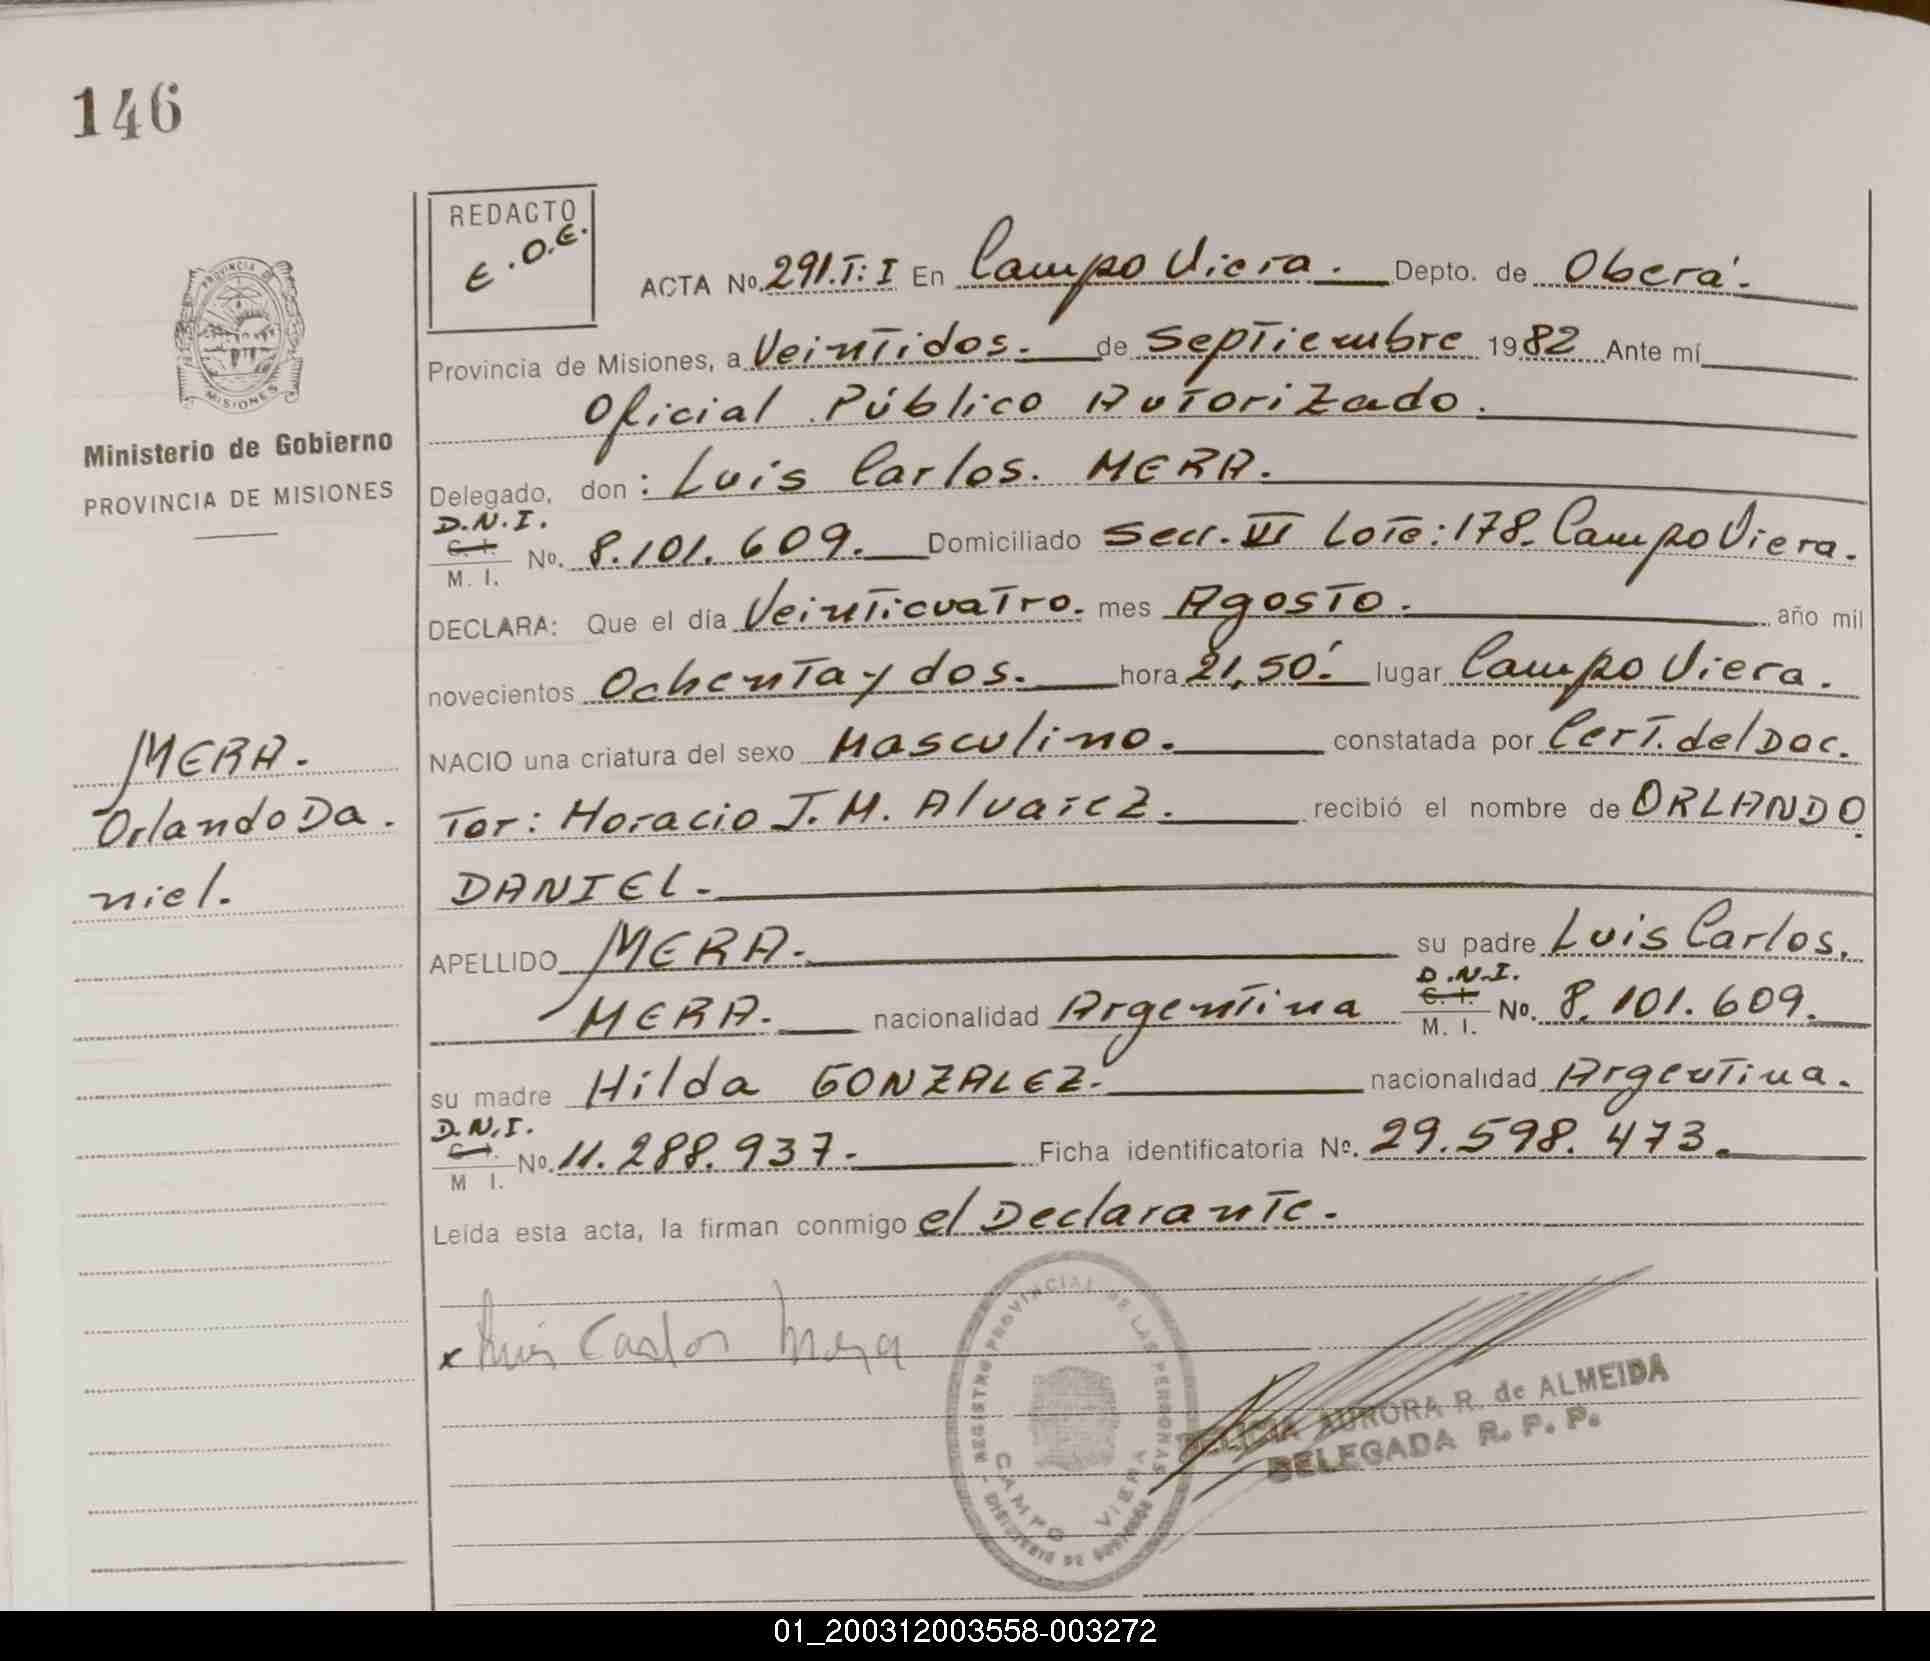 146
REDACTO
E.O.E.
PROVINCIA DE
MISIONES
Ministerio de Gobierno
PROVINCIA DE MISIONES
ACTA No. 291.T: I En Campo Viera. Depto. de Oberá.
Provincia de Misiones, a Veintidos. de Septiembre 1982 Ante mí
Oficial Público Autorizado.
Delegado, don: Luis Carlos. MERA.
D.N.I.
C. I.
M. I. No. 8.101.609. Domiciliado Secc. VI Lote: 178. Campo Viera.
DECLARA: Que el día Veinticuatro. mes Agosto. año mil
novecientos Ochenta y dos. hora 21,50'. lugar Campo Viera.
NACIO una criatura del sexo Masculino. constatada por Cert. del Doc.
tor: Horacio J. M. Alvarez. recibió el nombre de ORLANDO
DANIEL.
APELLIDO MERA. su padre Luis Carlos.
MERA. nacionalidad Argentina D.N.I. C. I. M. I. No. 8.101.609.
su madre Hilda GONZALEZ. nacionalidad Argentina.
D.N.I.
C. I.
M I. No. 11.288.937. Ficha identificatoria Nº. 29.598.473.
Leída esta acta, la firman conmigo el Declarante.
MERA.
Orlando Da.
niel.
x Luis Carlos Mera
REGISTRO PROVINCIAL DE LAS PERSONAS
CAMPO VIERA
MINISTERIO DE GOBIERNO
DELICIA AURORA R. de ALMEIDA
DELEGADA R. P. P.
01_200312003558-003272